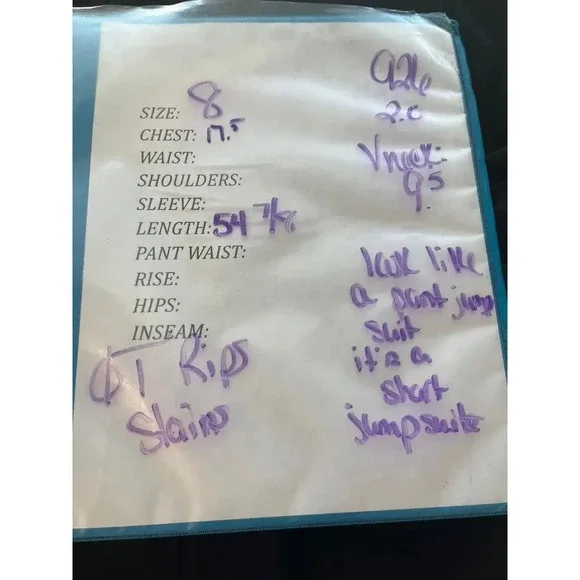 SIZE: 8
CHEST: 17.5
WAIST:
SHOULDERS:
SLEEVE:
LENGTH: 54 7/8
PANT WAIST:
RISE:
HIPS:
INSEAM:
Rips
Stains
2.0
V neck:
9.5
look like
a pant jump
suit
it is a
short
jumpsuite